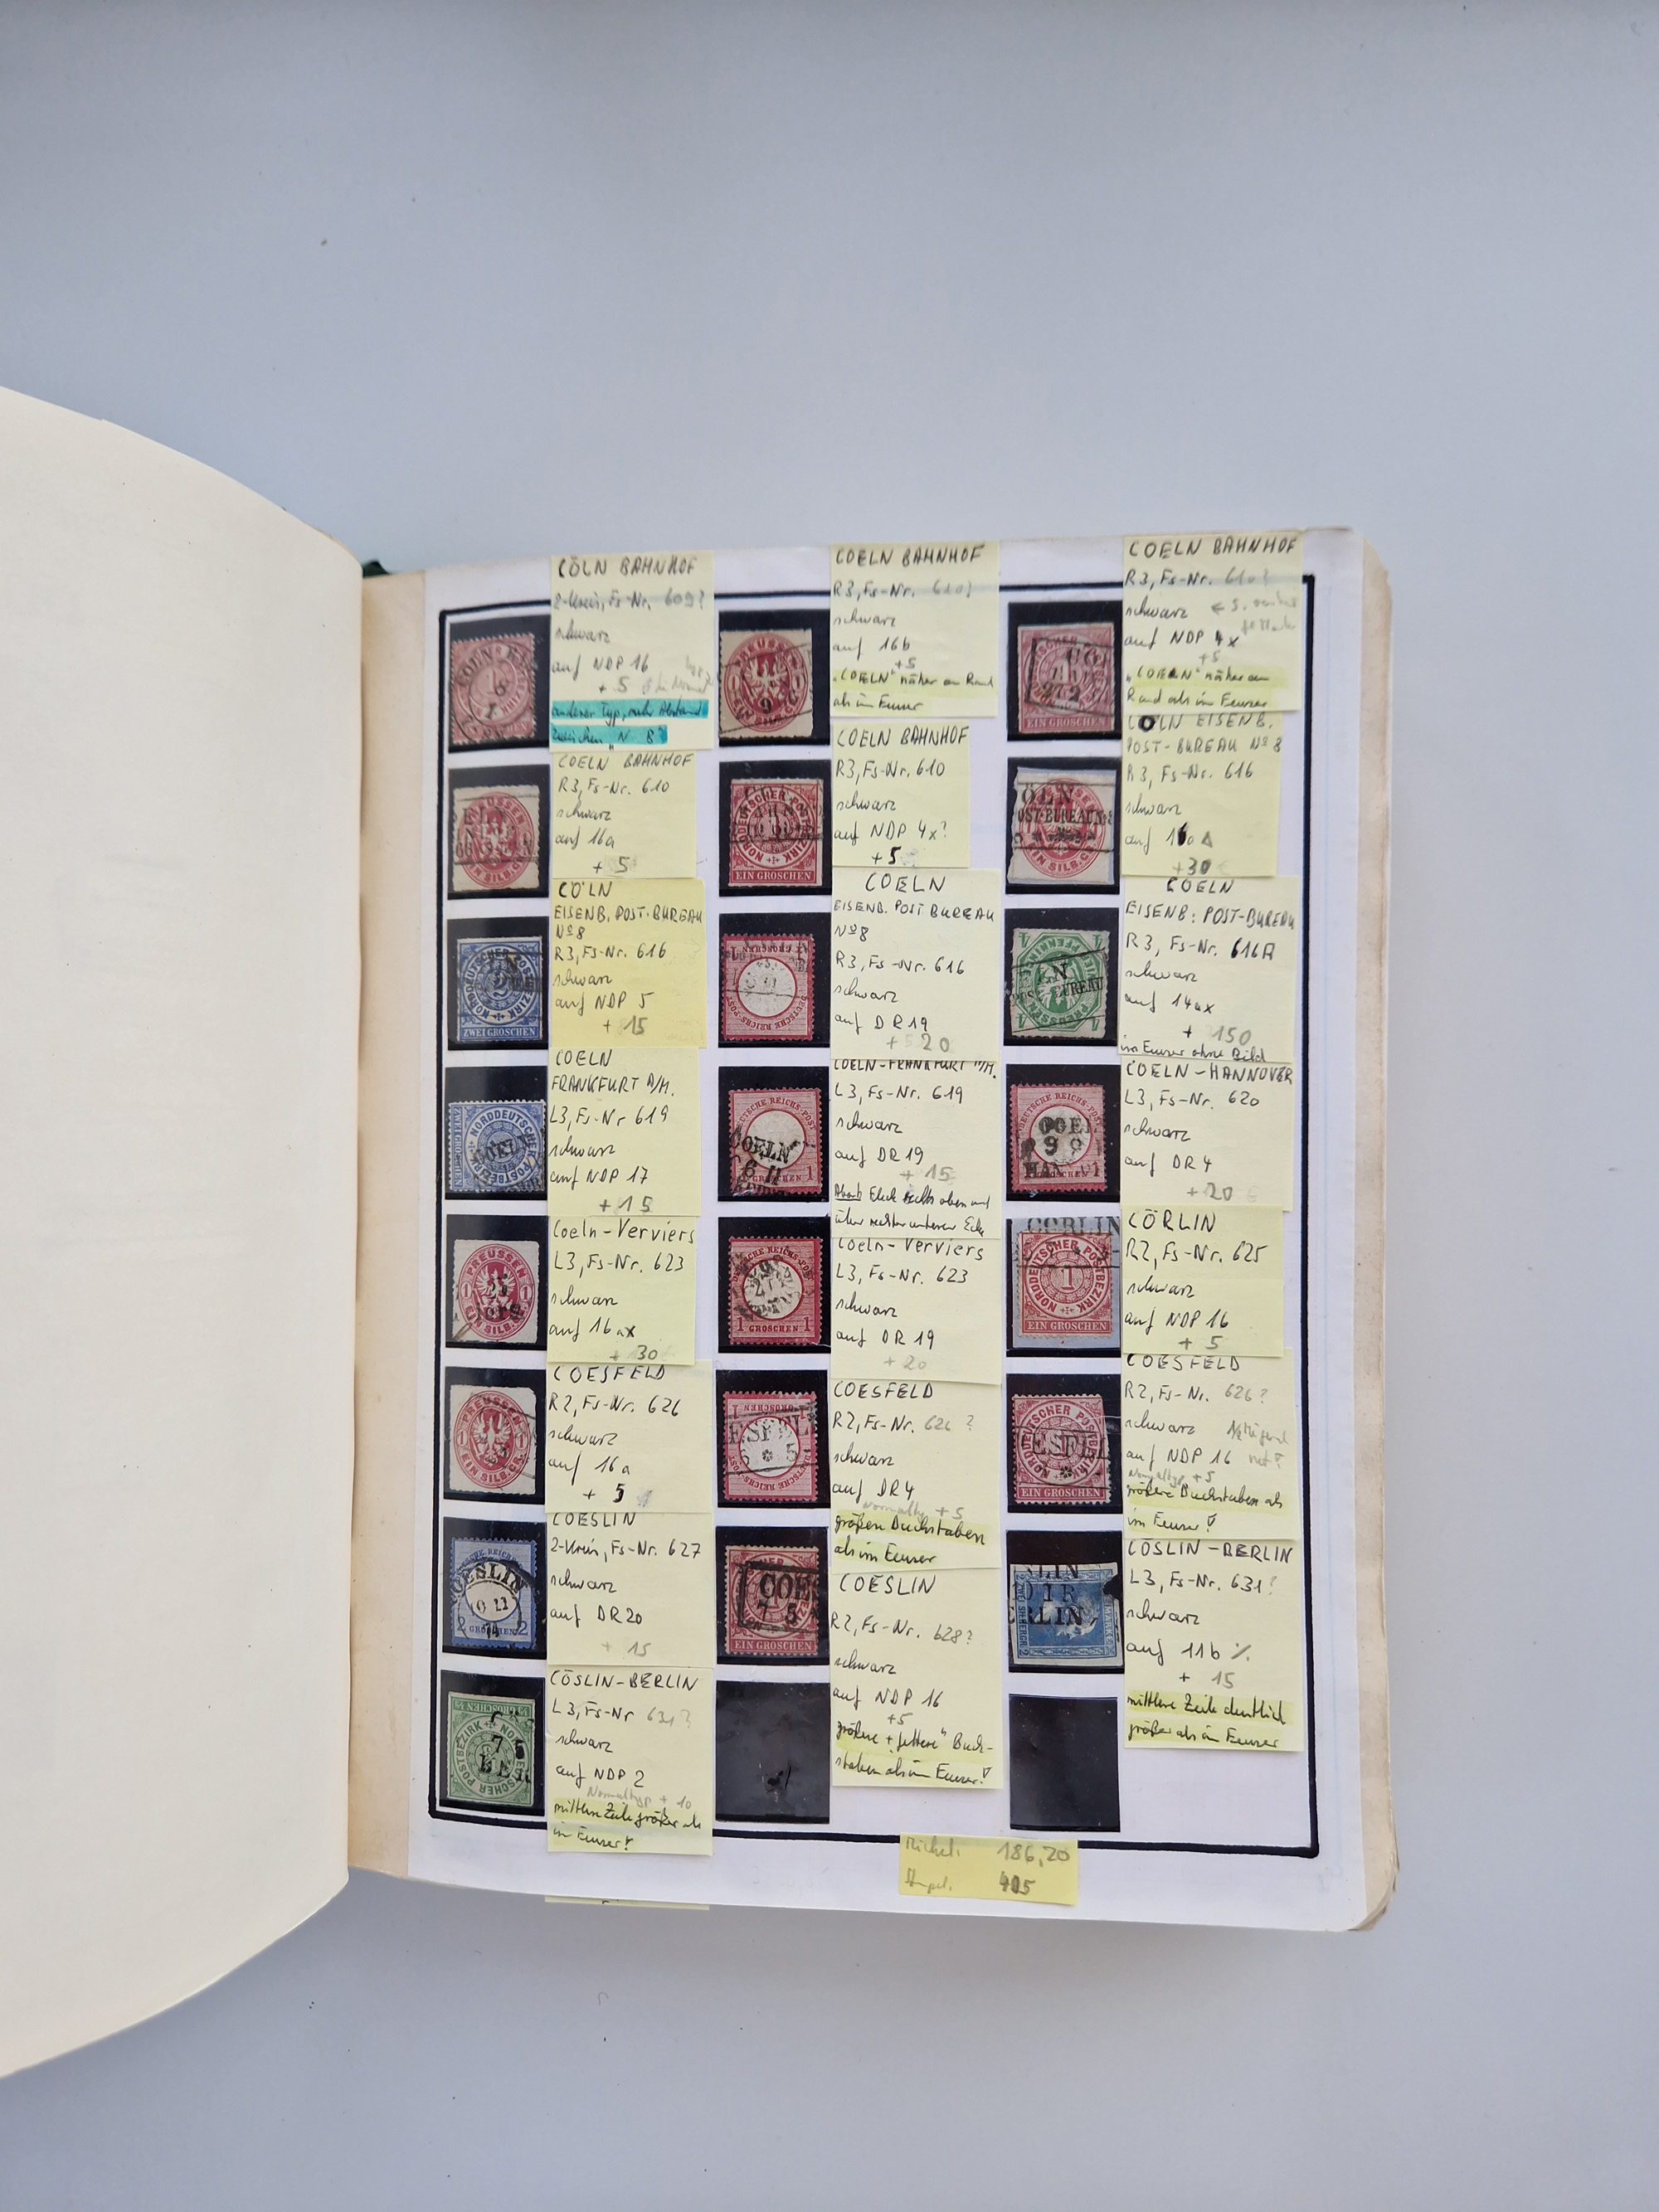 CÖLN BAHNHOF
2-Kreis, Fs-Nr. 609?
schwarz
auf NDP 16
+ 5
anderer Typ, mehr Abstand
zwischen "N. B"
COELN BAHNHOF
R3, Fs-Nr. 610?
schwarz
auf 16b
+5
"COELN" näher am Rand
als im Feuser
COELN BAHNHOF
R3, Fs-Nr. 610?
schwarz
auf NDP 4x
+5
"COELN" näher am
Rand als im Feuser
COELN BAHNHOF
R3, Fs-Nr. 610
schwarz
auf 16a
+ 5
COELN BAHNHOF
R3, Fs-Nr. 610
schwarz
auf NDP 4x?
+ 5
CÖLN EISENB.
POST-BUREAU No 8
R3, Fs-Nr. 616
schwarz
auf 16a Δ
+30
CÖLN
EISENB. POST-BUREAU
No 8
R3, Fs-Nr. 616
schwarz
auf NDP 5
+ 15
COELN
EISENB. POST BUREAU
No 8
R3, Fs-Nr. 616
schwarz
auf DR 19
+ 20
COELN
EISENB: POST-BUREAU
R3, Fs-Nr. 616A
schwarz
auf 14ax
+ 150
im Feuser ohne Bild
COELN
FRANKFURT A/M.
L3, Fs-Nr 619
schwarz
auf NDP 17
+ 15
COELN-FRANKFURT A/M.
L3, Fs-Nr. 619
schwarz
auf DR 19
+ 15
Eck rechts oben und
über rechter unterer Ecke
COELN-HANNOVER
L3, Fs-Nr. 620
schwarz
auf DR 4
+ 20
Coeln-Verviers
L3, Fs-Nr. 623
schwarz
auf 16ax
+ 30
Coeln-Verviers
L3, Fs-Nr. 623
schwarz
auf DR 19
+ 20
CÖRLIN
R2, Fs-Nr. 625
schwarz
auf NDP 16
+ 5
COESFELD
R2, Fs-Nr. 626
schwarz
auf 16a
+ 5
COESFELD
R2, Fs-Nr. 626 ?
schwarz
auf DR4
Normaltyp +5
größere Buchstaben
als im Feuser
COESFELD
R2, Fs-Nr. 626?
schwarz
auf NDP 16
Normaltyp +5
größere Buchstaben als
im Feuser!
COESLIN
2-Kreis, Fs-Nr. 627
schwarz
auf DR20
+ 15
COESLIN
R2, Fs-Nr. 628?
schwarz
auf NDP 16
+5
größere + "fettere" Buch-
staben als im Feuser!
CÖSLIN-BERLIN
L3, Fs-Nr. 631?
schwarz
auf 11b %
+ 15
mittlere Zeile deutlich
größer als im Feuser
CÖSLIN-BERLIN
L3, Fs-Nr 631?
schwarz
auf NDP 2
Normaltyp + 10
mittlere Zeile größer als
im Feuser!
Michel. 186,20
Stempel. 405
EIN GROSCHEN
EIN GROSCHEN
ZWEI GROSCHEN
EIN GROSCHEN
EIN GROSCHEN
EIN GROSCHEN